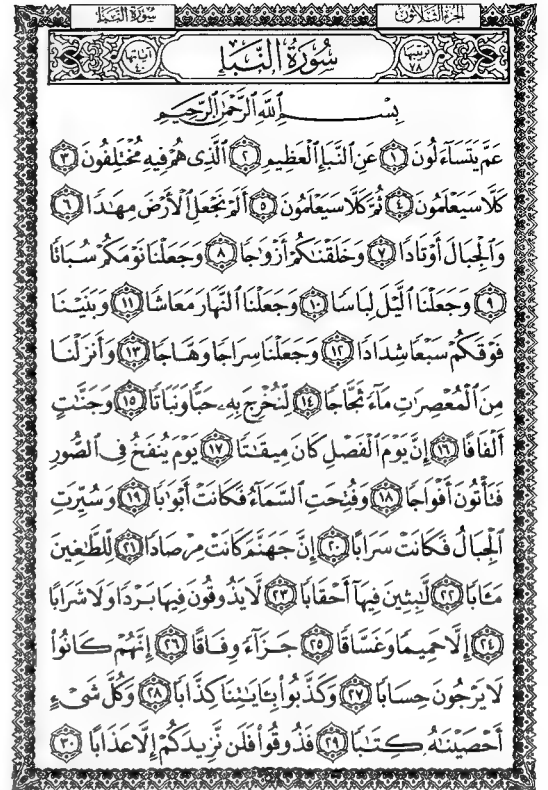 سُورَةُ النَّبَإِ
الجزء الثلاثون
ترتيبها ٧٨
سُورَةُ النَّبَإِ
آياتها ٤٠
بِسْمِ ٱللَّهِ ٱلرَّحْمَٰنِ ٱلرَّحِيمِ
عَمَّ يَتَسَآءَلُونَ ١ عَنِ ٱلنَّبَإِ ٱلْعَظِيمِ ٢ ٱلَّذِى هُمْ فِيهِ مُخْتَلِفُونَ ٣
كَلَّا سَيَعْلَمُونَ ٤ ثُمَّ كَلَّا سَيَعْلَمُونَ ٥ أَلَمْ نَجْعَلِ ٱلْأَرْضَ مِهَٰدًا ٦
وَٱلْجِبَالَ أَوْتَادًا ٧ وَخَلَقْنَٰكُمْ أَزْوَٰجًا ٨ وَجَعَلْنَا نَوْمَكُمْ سُبَاتًا
٩ وَجَعَلْنَا ٱلَّيْلَ لِبَاسًا ١٠ وَجَعَلْنَا ٱلنَّهَارَ مَعَاشًا ١١ وَبَنَيْنَا
فَوْقَكُمْ سَبْعًا شِدَادًا ١٢ وَجَعَلْنَا سِرَاجًا وَهَّاجًا ١٣ وَأَنزَلْنَا
مِنَ ٱلْمُعْصِرَٰتِ مَآءً ثَجَّاجًا ١٤ لِّنُخْرِجَ بِهِۦ حَبًّا وَنَبَاتًا ١٥ وَجَنَّٰتٍ
أَلْفَافًا ١٦ إِنَّ يَوْمَ ٱلْفَصْلِ كَانَ مِيقَٰتًا ١٧ يَوْمَ يُنفَخُ فِى ٱلصُّورِ
فَتَأْتُونَ أَفْوَاجًا ١٨ وَفُتِحَتِ ٱلسَّمَآءُ فَكَانَتْ أَبْوَٰبًا ١٩ وَسُيِّرَتِ
ٱلْجِبَالُ فَكَانَتْ سَرَابًا ٢٠ إِنَّ جَهَنَّمَ كَانَتْ مِرْصَادًا ٢١ لِّلطَّٰغِينَ
مَـَٔابًا ٢٢ لَّٰبِثِينَ فِيهَآ أَحْقَابًا ٢٣ لَّا يَذُوقُونَ فِيهَا بَرْدًا وَلَا شَرَابًا
٢٤ إِلَّا حَمِيمًا وَغَسَّاقًا ٢٥ جَزَآءً وِفَاقًا ٢٦ إِنَّهُمْ كَانُوا۟
لَا يَرْجُونَ حِسَابًا ٢٧ وَكَذَّبُوا۟ بِـَٔايَٰتِنَا كِذَّابًا ٢٨ وَكُلَّ شَىْءٍ
أَحْصَيْنَٰهُ كِتَٰبًا ٢٩ فَذُوقُوا۟ فَلَن نَّزِيدَكُمْ إِلَّا عَذَابًا ٣٠